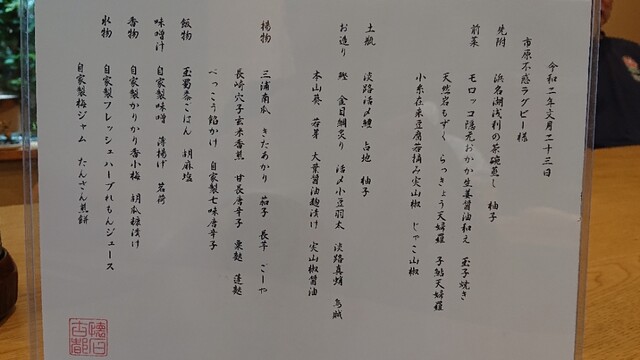 令和二年文月二十三日
市原不惑ラグビー様
先附 浜名湖浅利の茶碗蒸し 柚子
前菜 モロッコ隠元おかか生姜醤油和え 玉子焼き
天然岩もずく らっきょう天婦羅 子鮎天婦羅
小糸在来豆腐若摘み実山椒 じゃこ山椒
土瓶 淡路活〆鱧 占地 柚子
お造り 鰹 金目鯛炙り 活〆小豆羽太 淡路真蛸 烏賊
本山葵 若芽 大葉醤油麹漬け 実山椒醤油
揚物 三浦南瓜 きたあかり 茄子 長芋 ごーや
長崎穴子玄米香煎 甘長唐辛子 粟麩 蓮麩
べっこう餡かけ 自家製七味唐辛子
飯物 玉蜀黍ごはん 胡麻塩
味噌汁 自家製味噌 薄揚げ 茗荷
香物 自家製かりかり香小梅 胡瓜糠漬け
水物 自家製フレッシュハーブれもんジュース
自家製梅ジャム たんさん煎餅
懐石
古都